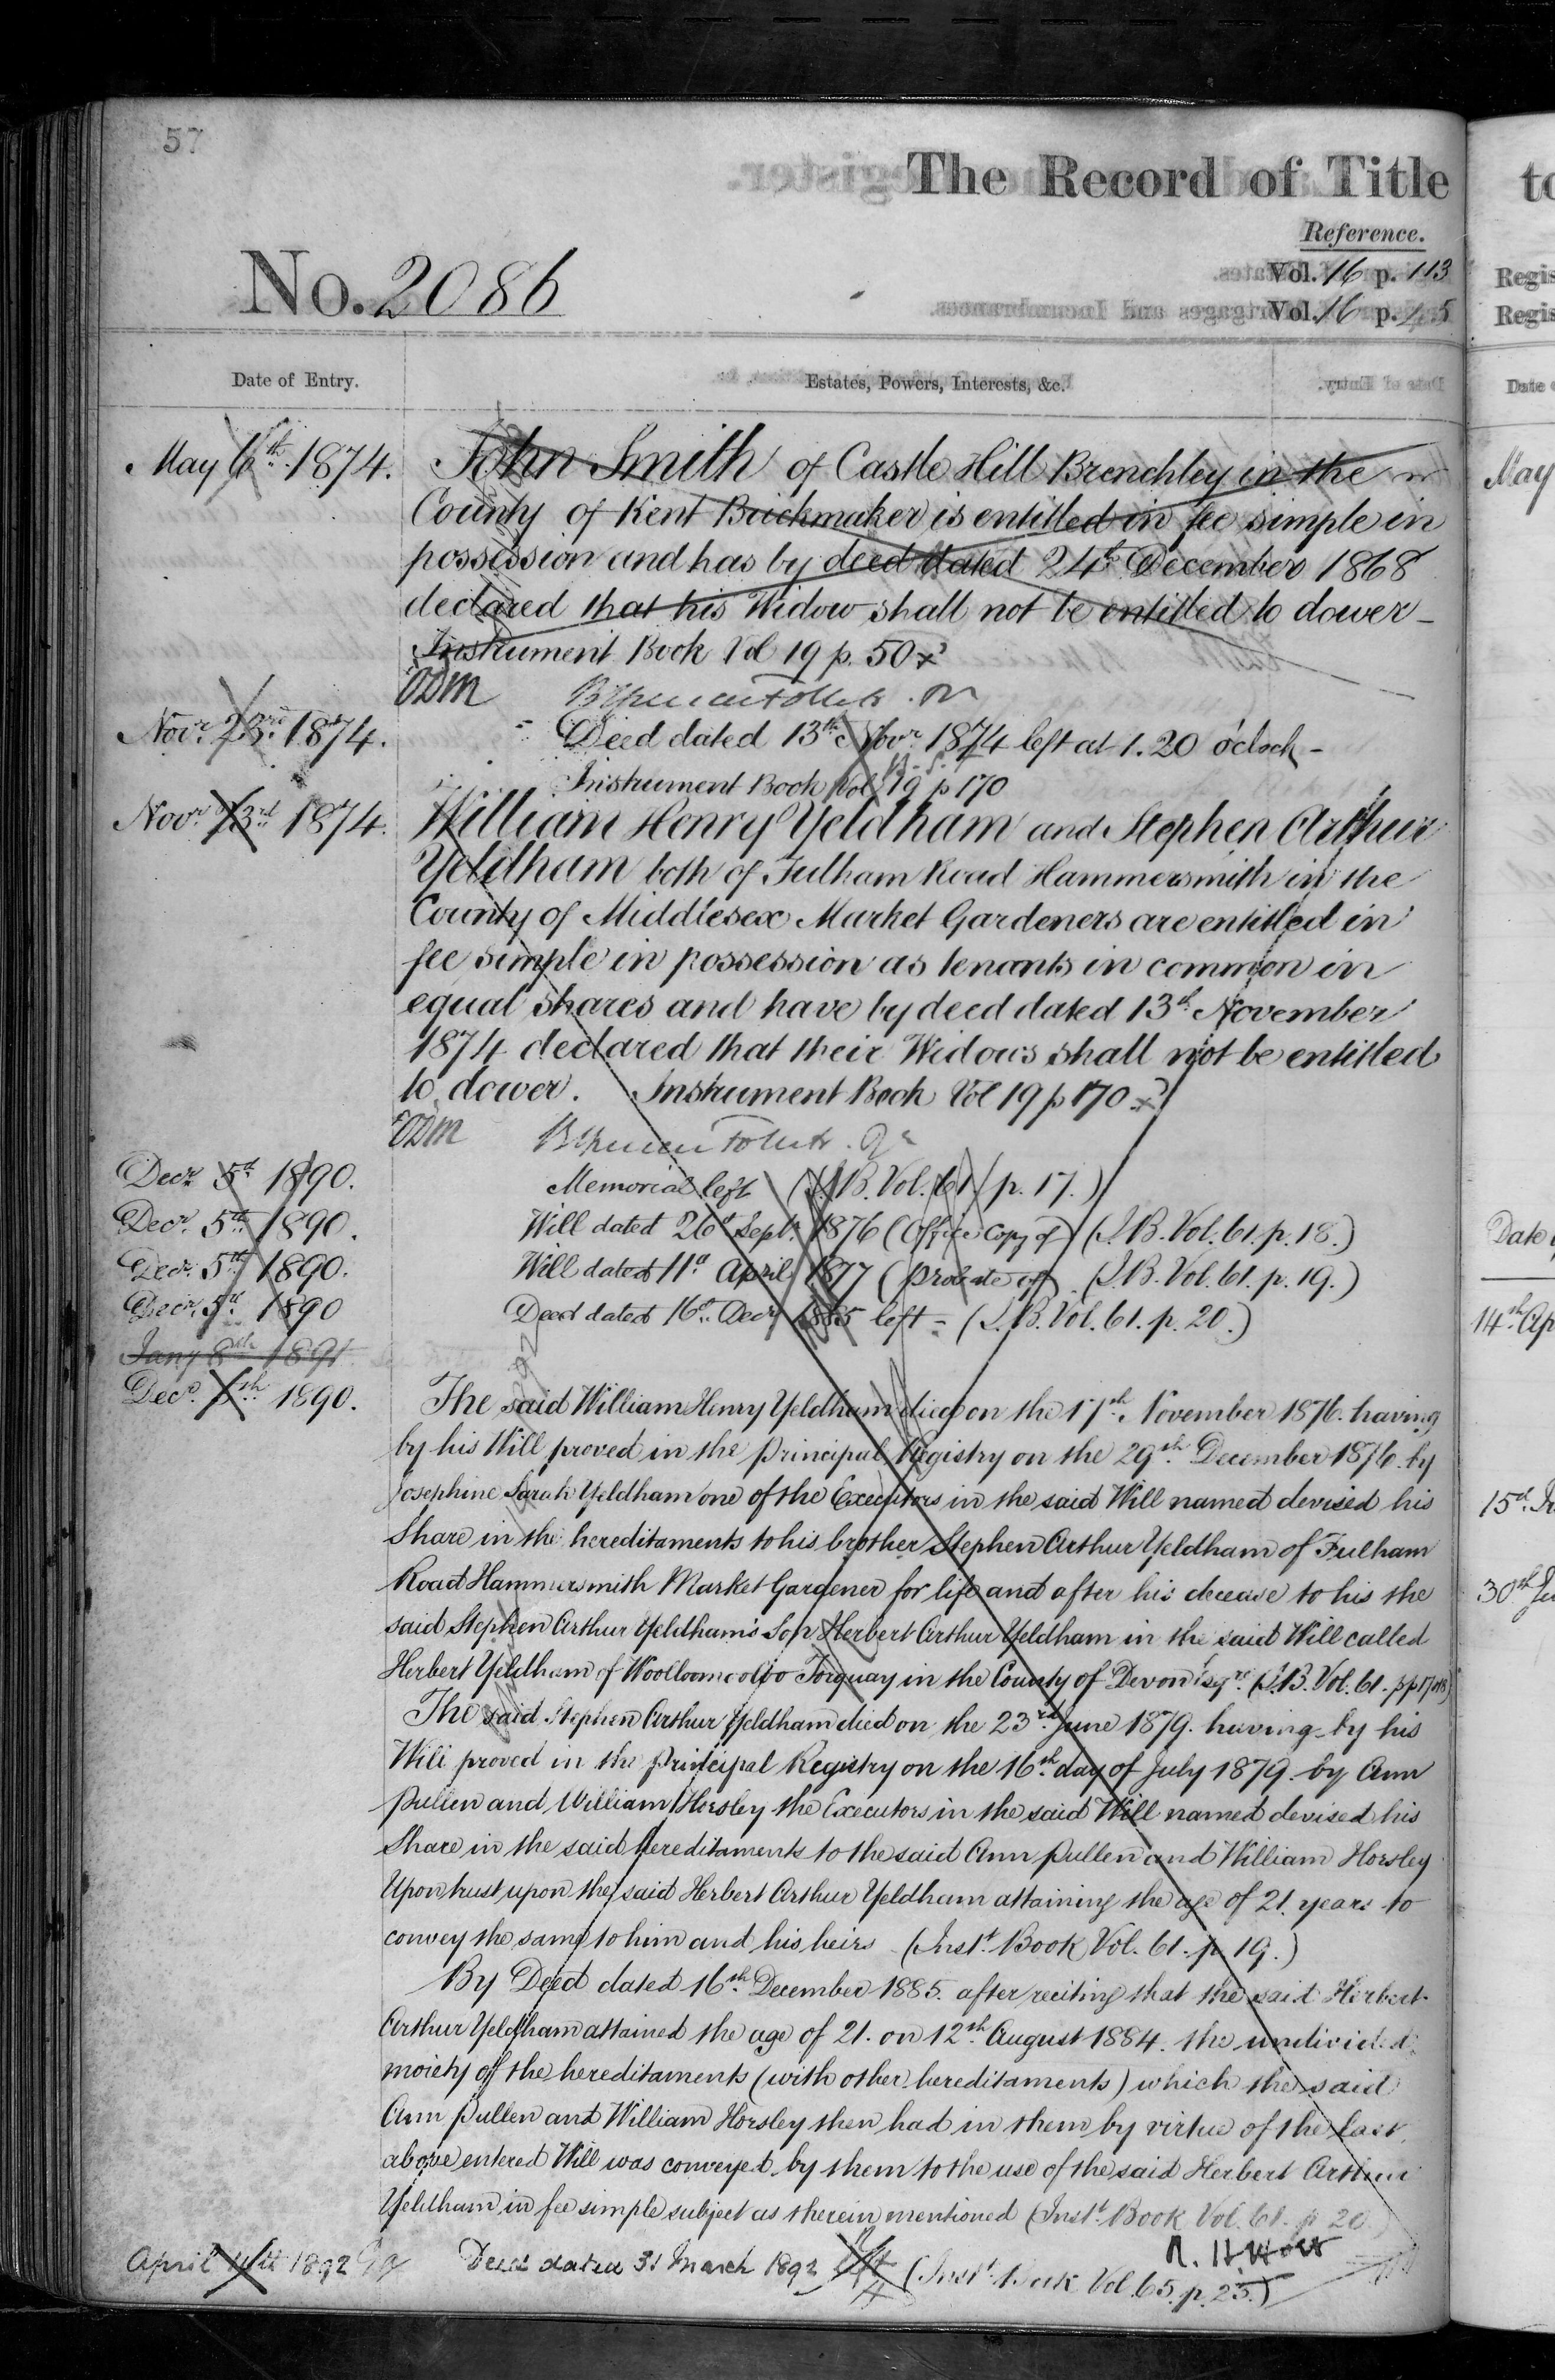 57
The Record of Title
Reference.
No. 2086
Vol. 16 p. 113
Vol. 16 p. 45
Date of Entry.
Estates, Powers, Interests, &c.
May 6th. 1874.
John Smith of Castle Hill Brenchley in the
County of Kent Brickmaker is entitled in fee simple in
possession and has by deed dated 24th December 1868
declared that his Widow shall not be entitled to dower -
Instrument Book Vol 19 p. 50
ODM
Novr. 23rd. 1874.
Deed dated 13th. Novr. 1874 left at 1.20 o'clock -
Instrument Book Vol 19 p 170
Novr. 23rd. 1874.
William Henry Yeldham and Stephen Arthur
Yeldham both of Fulham Road Hammersmith in the
County of Middlesex Market Gardeners are entitled in
fee simple in possession as tenants in common in
equal shares and have by deed dated 13th. November
1874 declared that their Widows shall not be entitled
to dower. Instrument Book Vol 19 p 170
ODM
Decr. 5th 1890.
Memorial left (I.B. Vol. 61 p. 17.)
Decr. 5th 1890.
Will dated 26th Septr. 1876 (Office Copy of) (I.B. Vol. 61. p. 18.)
Decr. 5th 1890.
Will dated 11th April 1877 (Probate of) (I.B. Vol. 61. p. 19.)
Decr. 5th 1890
Deed dated 16th. Decr. 1885 left - (I.B. Vol. 61. p. 20.)
Jany 8th 1891
Decr. 5th 1890.
The said William Henry Yeldham died on the 17th. November 1876. having
by his Will proved in the Principal Registry on the 29th. December 1876. by
Josephine Sarah Yeldham one of the Executors in the said Will named devised his
Share in the hereditaments to his brother Stephen Arthur Yeldham of Fulham
Road Hammersmith Market Gardener for life and after his decease to his the
said Stephen Arthur Yeldham's Son Herbert Arthur Yeldham in the said Will called
Herbert Yeldham of Woolloomooloo Torquay in the County of Devon Esqre. (I.B. Vol. 61. pp 17 & 18)
The said Stephen Arthur Yeldham died on the 23rd. June 1879. having by his
Will proved in the Principal Registry on the 16th. day of July 1879. by Ann
Pullen and William Horsley the Executors in the said Will named devised his
Share in the said hereditaments to the said Ann Pullen and William Horsley
Upon trust upon the said Herbert Arthur Yeldham attaining the age of 21 years to
convey the same to him and his heirs (Inst. Book Vol. 61. p. 19.)
By Deed dated 16th. December 1885. after reciting that the said Herbert
Arthur Yeldham attained the age of 21. on 12th. August 1884. the undivided
moiety of the hereditaments (with other hereditaments) which the said
Ann Pullen and William Horsley then had in them by virtue of the last
above entered Will was conveyed by them to the use of the said Herbert Arthur
Yeldham in fee simple subject as therein mentioned (Inst. Book Vol. 61. p 20.)
April 11th 1892
Deed dated 31 March 1892 left (Inst. Book Vol. 65. p. 25.)
to
Regis
Regis
Date
May
Date
14th Ap
15th
30th